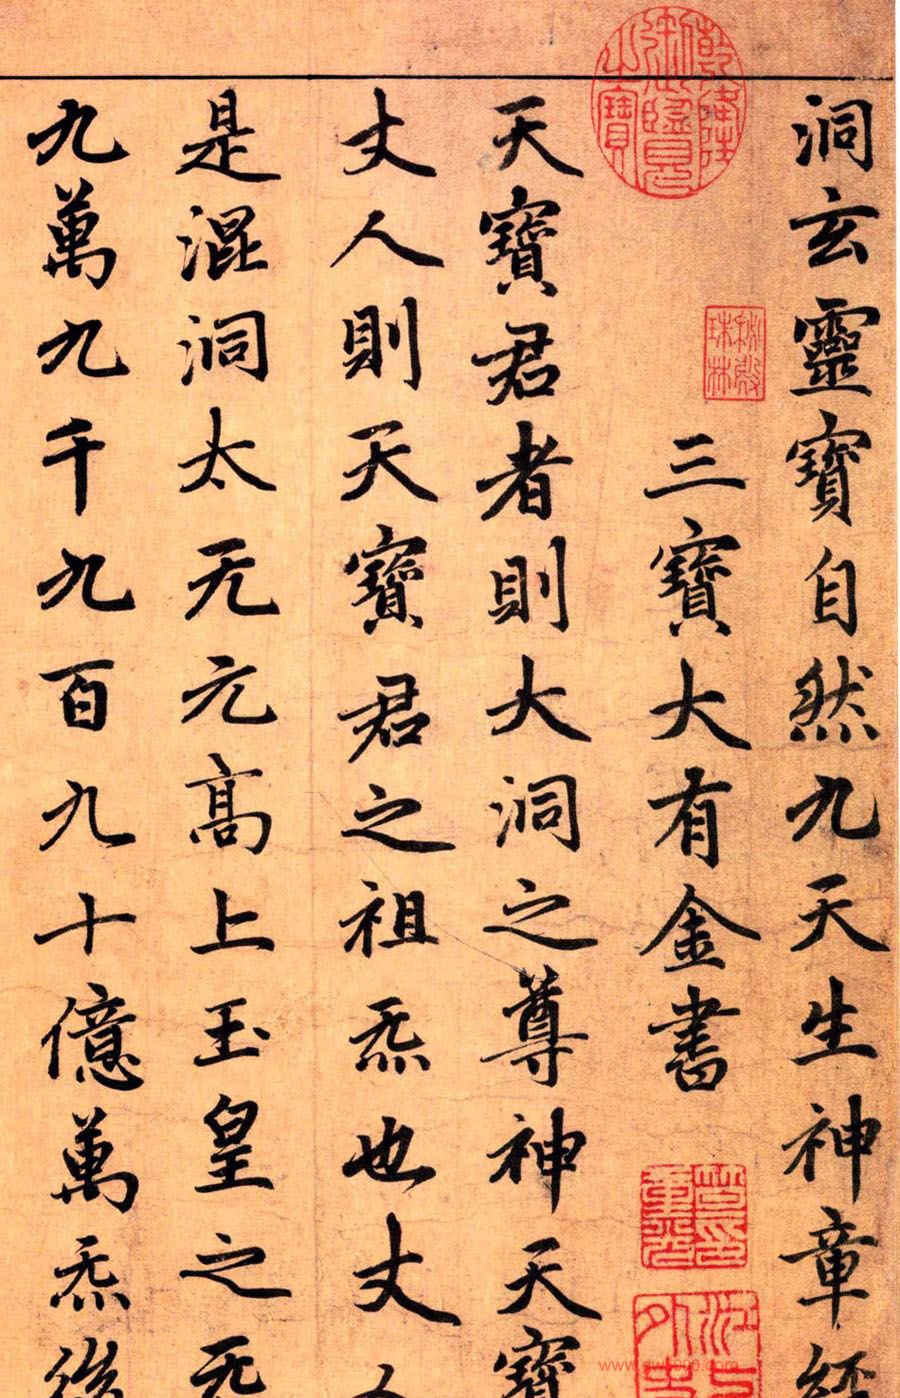 洞玄靈寶自然九天生神章經
乾隆御覽之寶
秘殿珠林
三寶大有金書
天寶君者則大洞之尊神天寶
丈人則天寶君之祖炁也丈人
是混洞太无元高上玉皇之炁
九萬九千九百九十億萬炁後